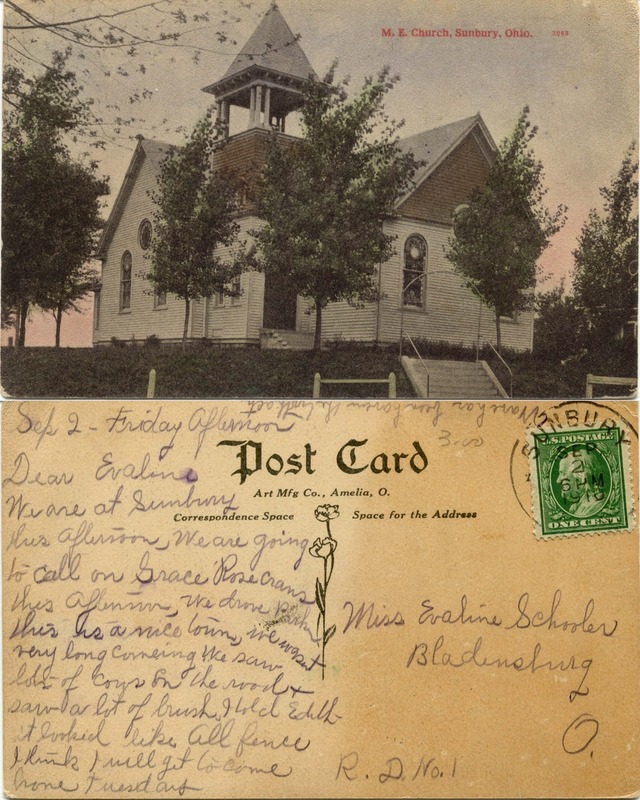 M. E. Church, Sunbury, Ohio. 3063
Sep 2 - Friday Afternoon
3-00
Post Card
Art Mfg Co., Amelia, O.
Correspondence Space
Space for the Address
SUNBURY
SEP
2
6 PM
1910
U.S. POSTAGE
ONE CENT
Dear Evaline
We are at Sunbury
this afternoon, We are going
to call on Grace Rosecrans
this afternoon, We drove
this is a nice town, we wasnt
very long comeing We saw
lots of cows on the road &
saw a lot of brush, I told Edith
it looked like all fence
I think I will get to come
home Tuesday
Miss Evaline Schooler
Bladensburg
O.
R. D. No. 1